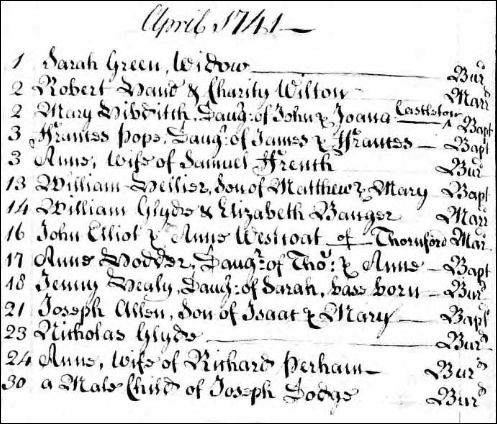 April 1741
1 Sarah Green, Widow Bur^d
2 Robert & Charity Wilton Marr^d
2 Mary Hibditch, Daug^r. of John & Joana Castleton Bapt
3 Ffrances Pope, Daug^r. of James & Ffrances Bapt
3 Anne, Wife of Samuel Ffrench Bur^d
13 William Hellier, Son of Matthew & Mary Bapt
14 William Glyde & Elizabeth Banger Marr
16 John Elliot & Anne Wescoat of Thornford Mar^r
17 Anne Hodder, Daug^r. of Tho^s. & Anne Bapt
18 Jenny Healy, Daug^r. of Sarah, base born Bur^d
21 Joseph Allen, Son of Isaac & Mary Bapt
23 Nicholas Glyde Bur^d
24 Anne, Wife of Richard Perham Bur^d
30 a Male Child of Joseph Dodge Bur^d